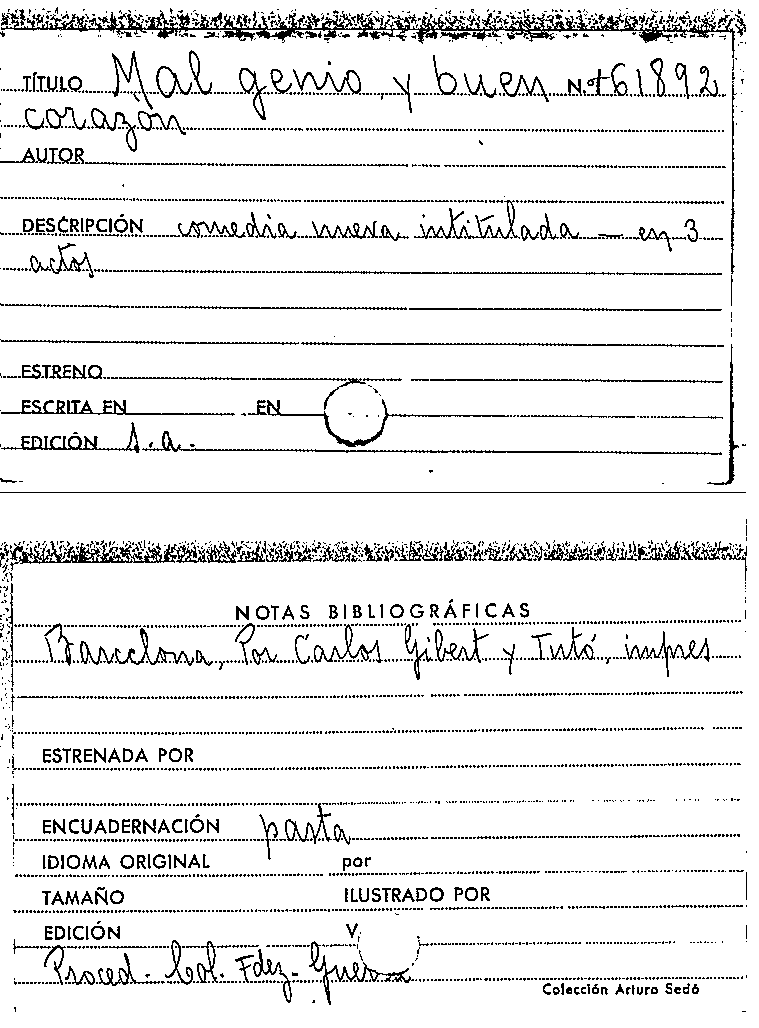 TÍTULO Mal genio, y buen N.º 61892
corazón
AUTOR
DESCRIPCIÓN comedia nueva intitulada — en 3
actos
ESTRENO
ESCRITA EN EN
EDICIÓN s.a.
NOTAS BIBLIOGRÁFICAS
Barcelona, Por Carlos Gibert y Tutó, impres
ESTRENADA POR
ENCUADERNACIÓN pasta
IDIOMA ORIGINAL por
TAMAÑO ILUSTRADO POR
EDICIÓN V
Proced- Col. Fdez-Guerra
Colección Arturo Sedó